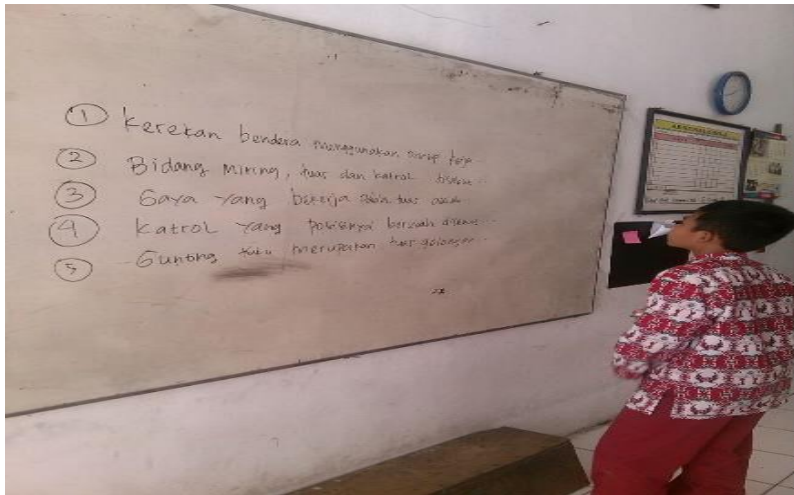 ① Kerekan bendera menggunakan prinsip kerja...
② Bidang Miring, tuas dan katrol disebut...
③ Gaya yang bekerja pada tuas adalah
④ Katrol yang posisinya berubah disebut...
⑤ Gunting kuku merupakan tuas golongan...